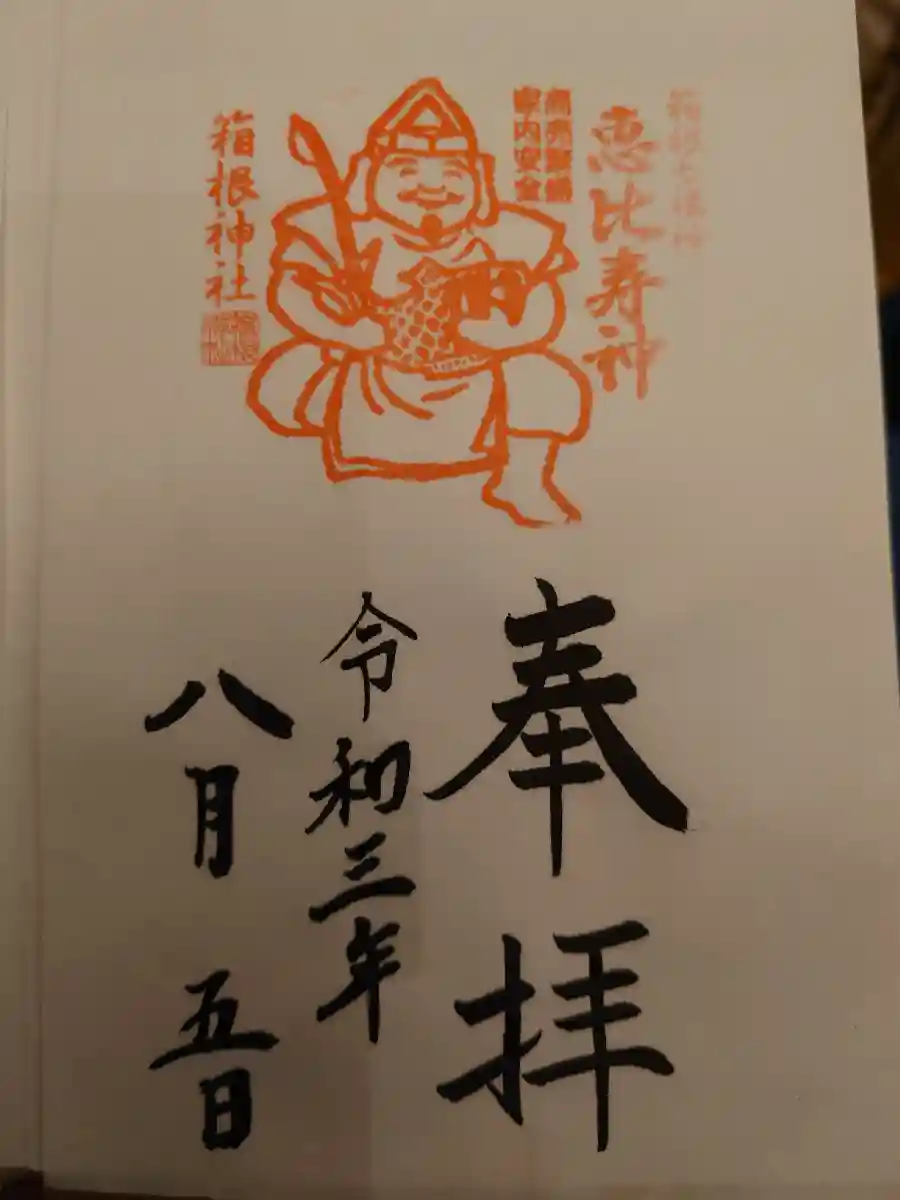 箱根七福神
恵比寿神
商売繁盛
家内安全
箱根神社
奉拝
令和三年
八月五日